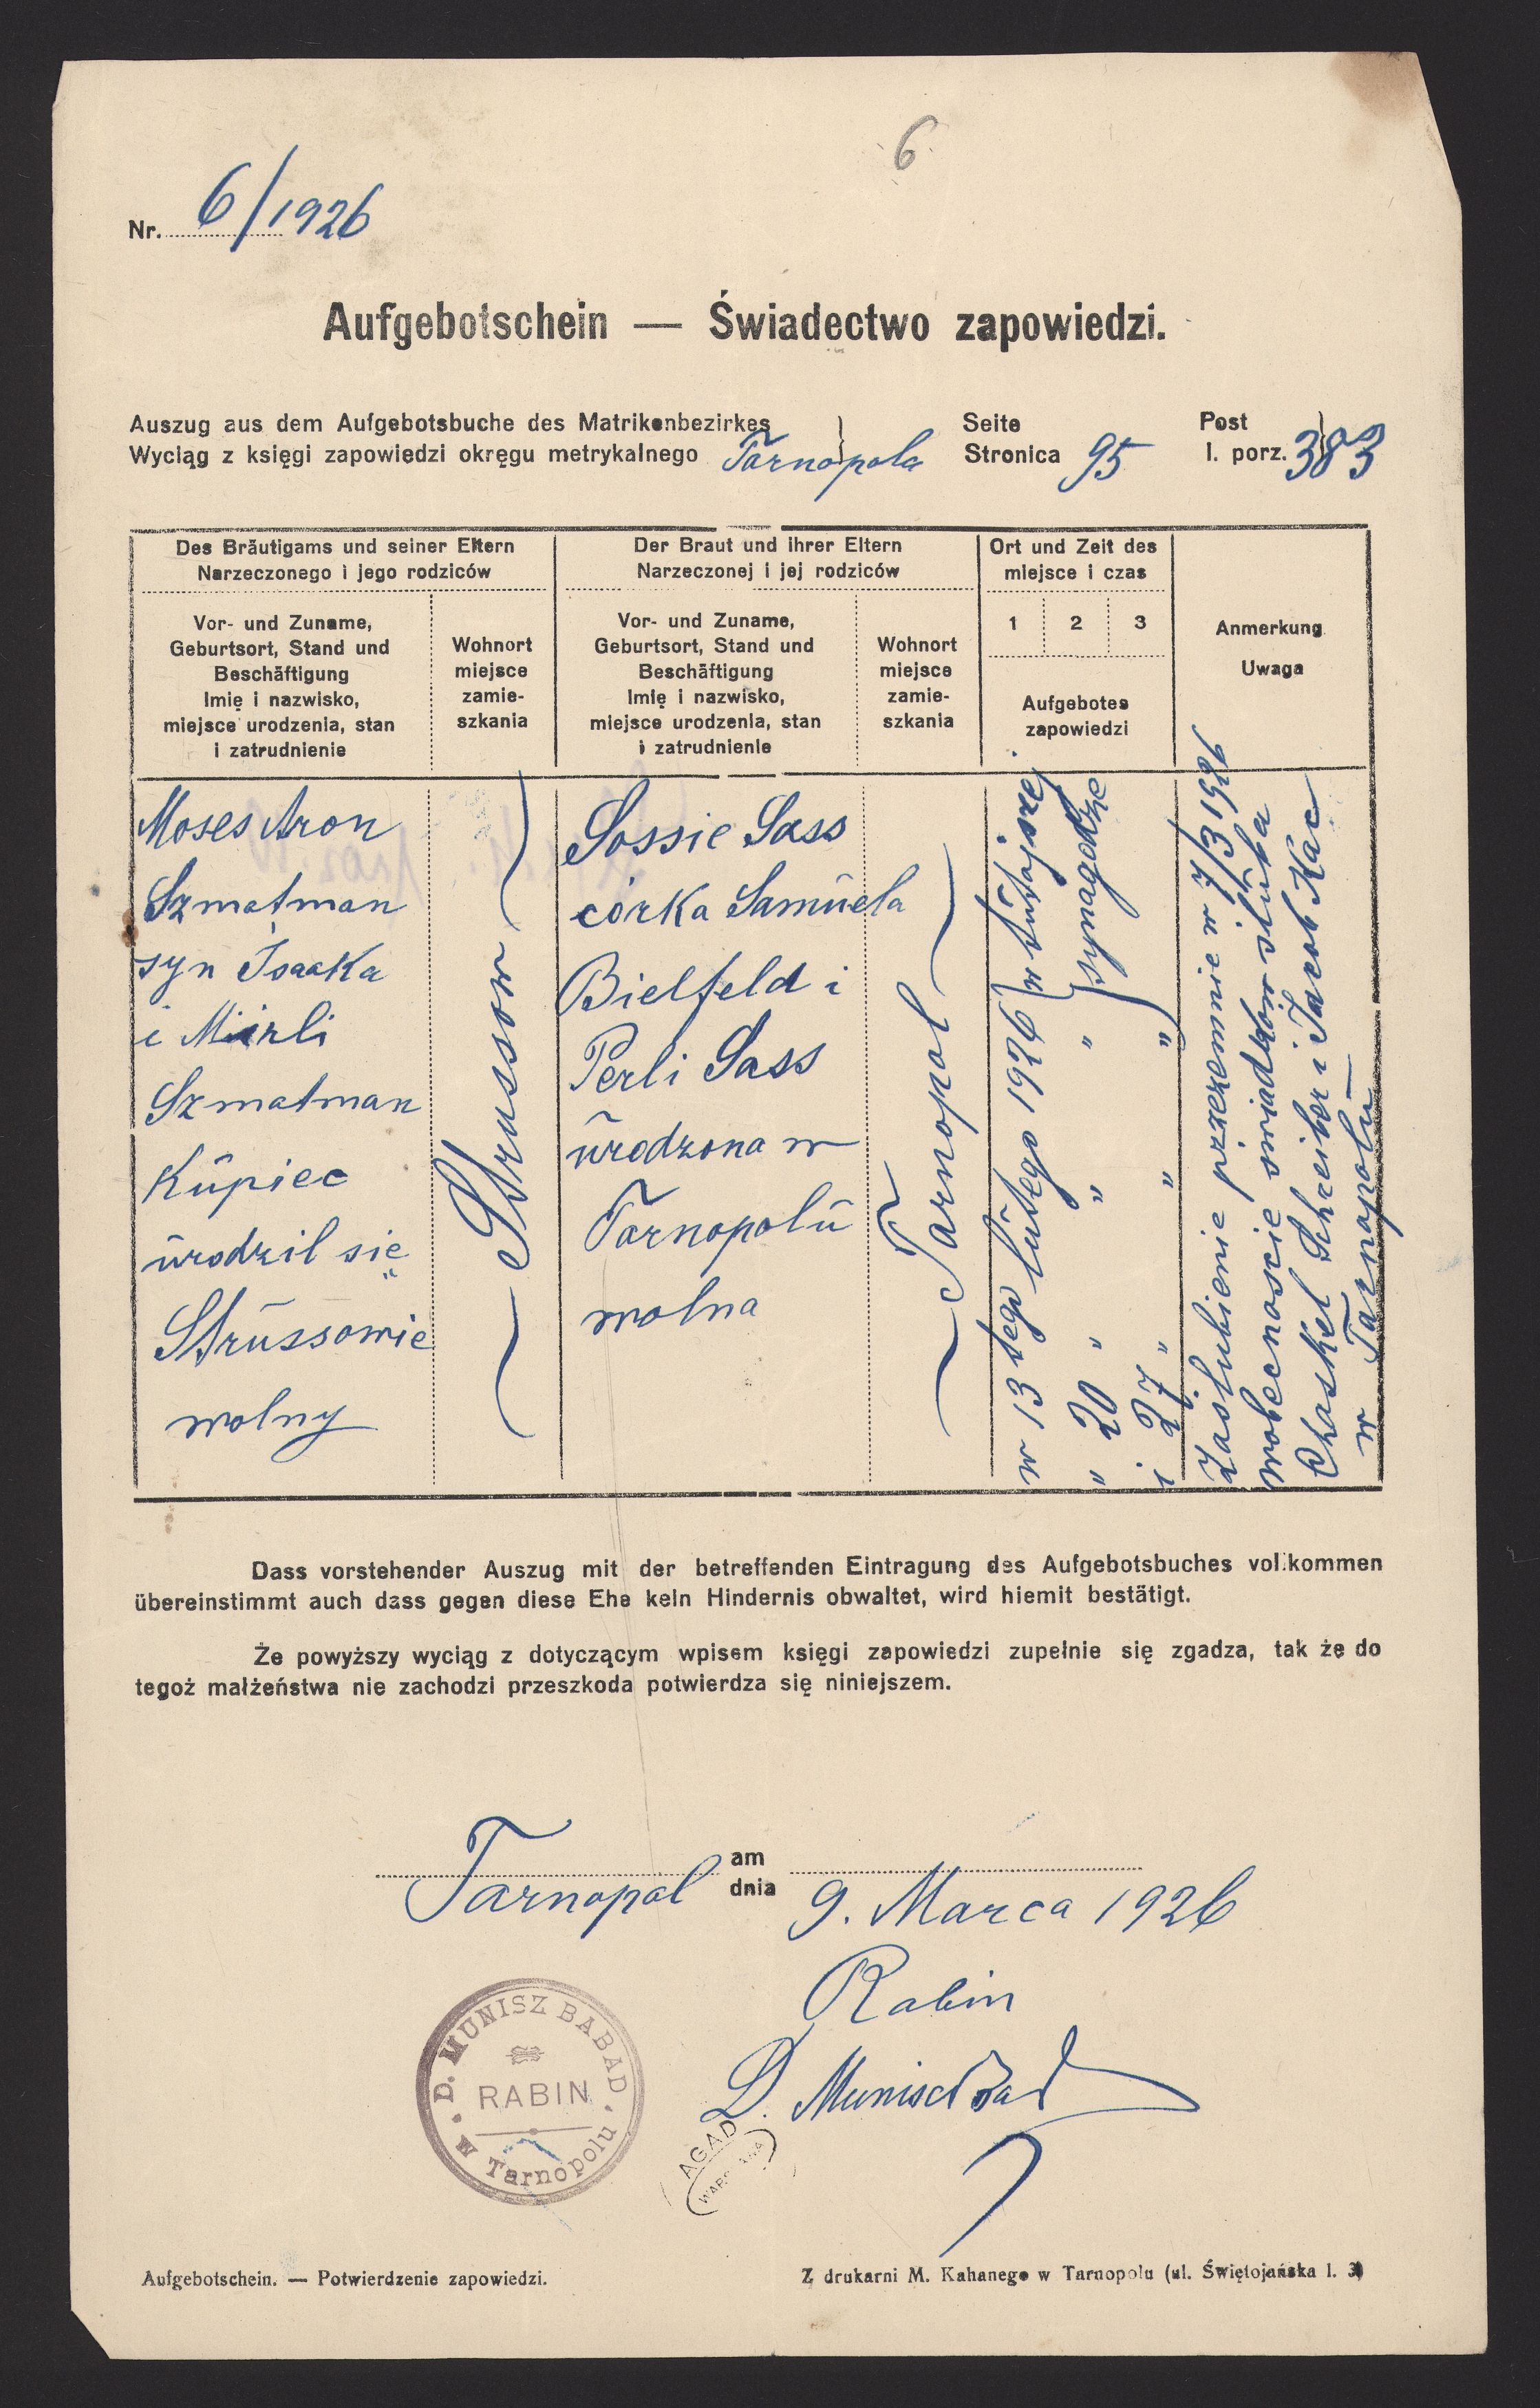 6
Nr. 6/1926
Aufgebotschein — Świadectwo zapowiedzi.
Auszug aus dem Aufgebotsbuche des Matrikenbezirkes
Wyciąg z księgi zapowiedzi okręgu metrykalnego Tarnopola
Seite
Stronica 95
Post
l. porz. 383
Des Bräutigams und seiner Eltern
Narzeczonego i jego rodziców
Vor- und Zuname,
Geburtsort, Stand und
Beschäftigung
Imię i nazwisko,
miejsce urodzenia, stan
i zatrudnienie
Wohnort
miejsce
zamie-
szkania
Der Braut und ihrer Eltern
Narzeczonej i jej rodziców
Vor- und Zuname,
Geburtsort, Stand und
Beschäftigung
Imię i nazwisko,
miejsce urodzenia, stan
i zatrudnienie
Wohnort
miejsce
zamie-
szkania
Ort und Zeit des
miejsce i czas
1 2 3
Aufgebotes
zapowiedzi
Anmerkung
Uwaga
Moses Aron
Szmatman
syn Isaaka
i Mirli
Szmatman
Kupiec
urodzil się
Strussowie
wolny
Strussow
Sossie Sass
córka Samuela
Bielfeld i
Perli Sass
urodzona w
Tarnopolu
wolna
Tarnopol
w 13 tego lutego 1926 } w tutajszej
" 20 " " " } synagodze
i 27 " " "
Zaslubienie przezemnie w 7/3 1926
wobecnoscie swiadków slubu
Chaskel Schreiber i Jacob Kac
w Tarnopolu —
Dass vorstehender Auszug mit der betreffenden Eintragung des Aufgebotsbuches vollkommen
übereinstimmt auch dass gegen diese Ehe kein Hindernis obwaltet, wird hiemit bestätigt.
Że powyższy wyciąg z dotyczącym wpisem księgi zapowiedzi zupełnie się zgadza, tak że do
tegoż małżeństwa nie zachodzi przeszkoda potwierdza się niniejszem.
Tarnopol am
dnia 9. Marca 1926
Rabin
D. Munisch
D. MUNISZ BABAD
RABIN
w Tarnopolu
AGAD
WARSZAWA
Aufgebotschein. — Potwierdzenie zapowiedzi.
Z drukarni M. Kahanego w Tarnopolu (ul. Świętojańska l. 3)